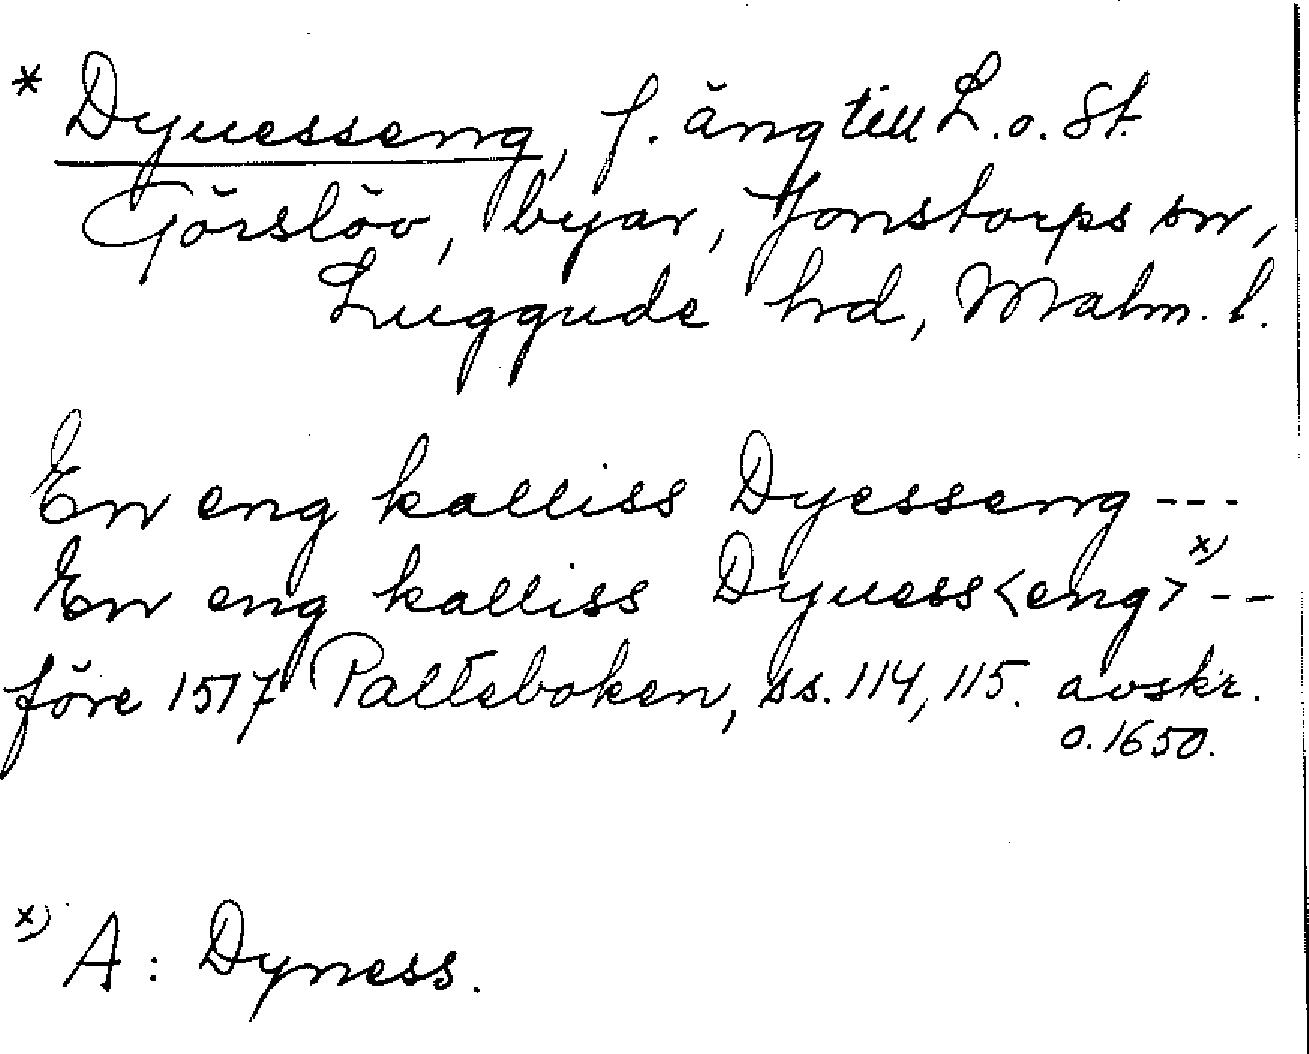 * Dyuesseng, f. äng till L. o. St.
Görslöv, byar, Jonstorps sn,
Luggude hd, Malm. l.
En eng kalliss Dyesseng ---
En eng kalliss Dyuess<eng> x) --
före 1517 Palteboken, ss. 114, 115. avskr.
o. 1650.
x) A: Dyness.